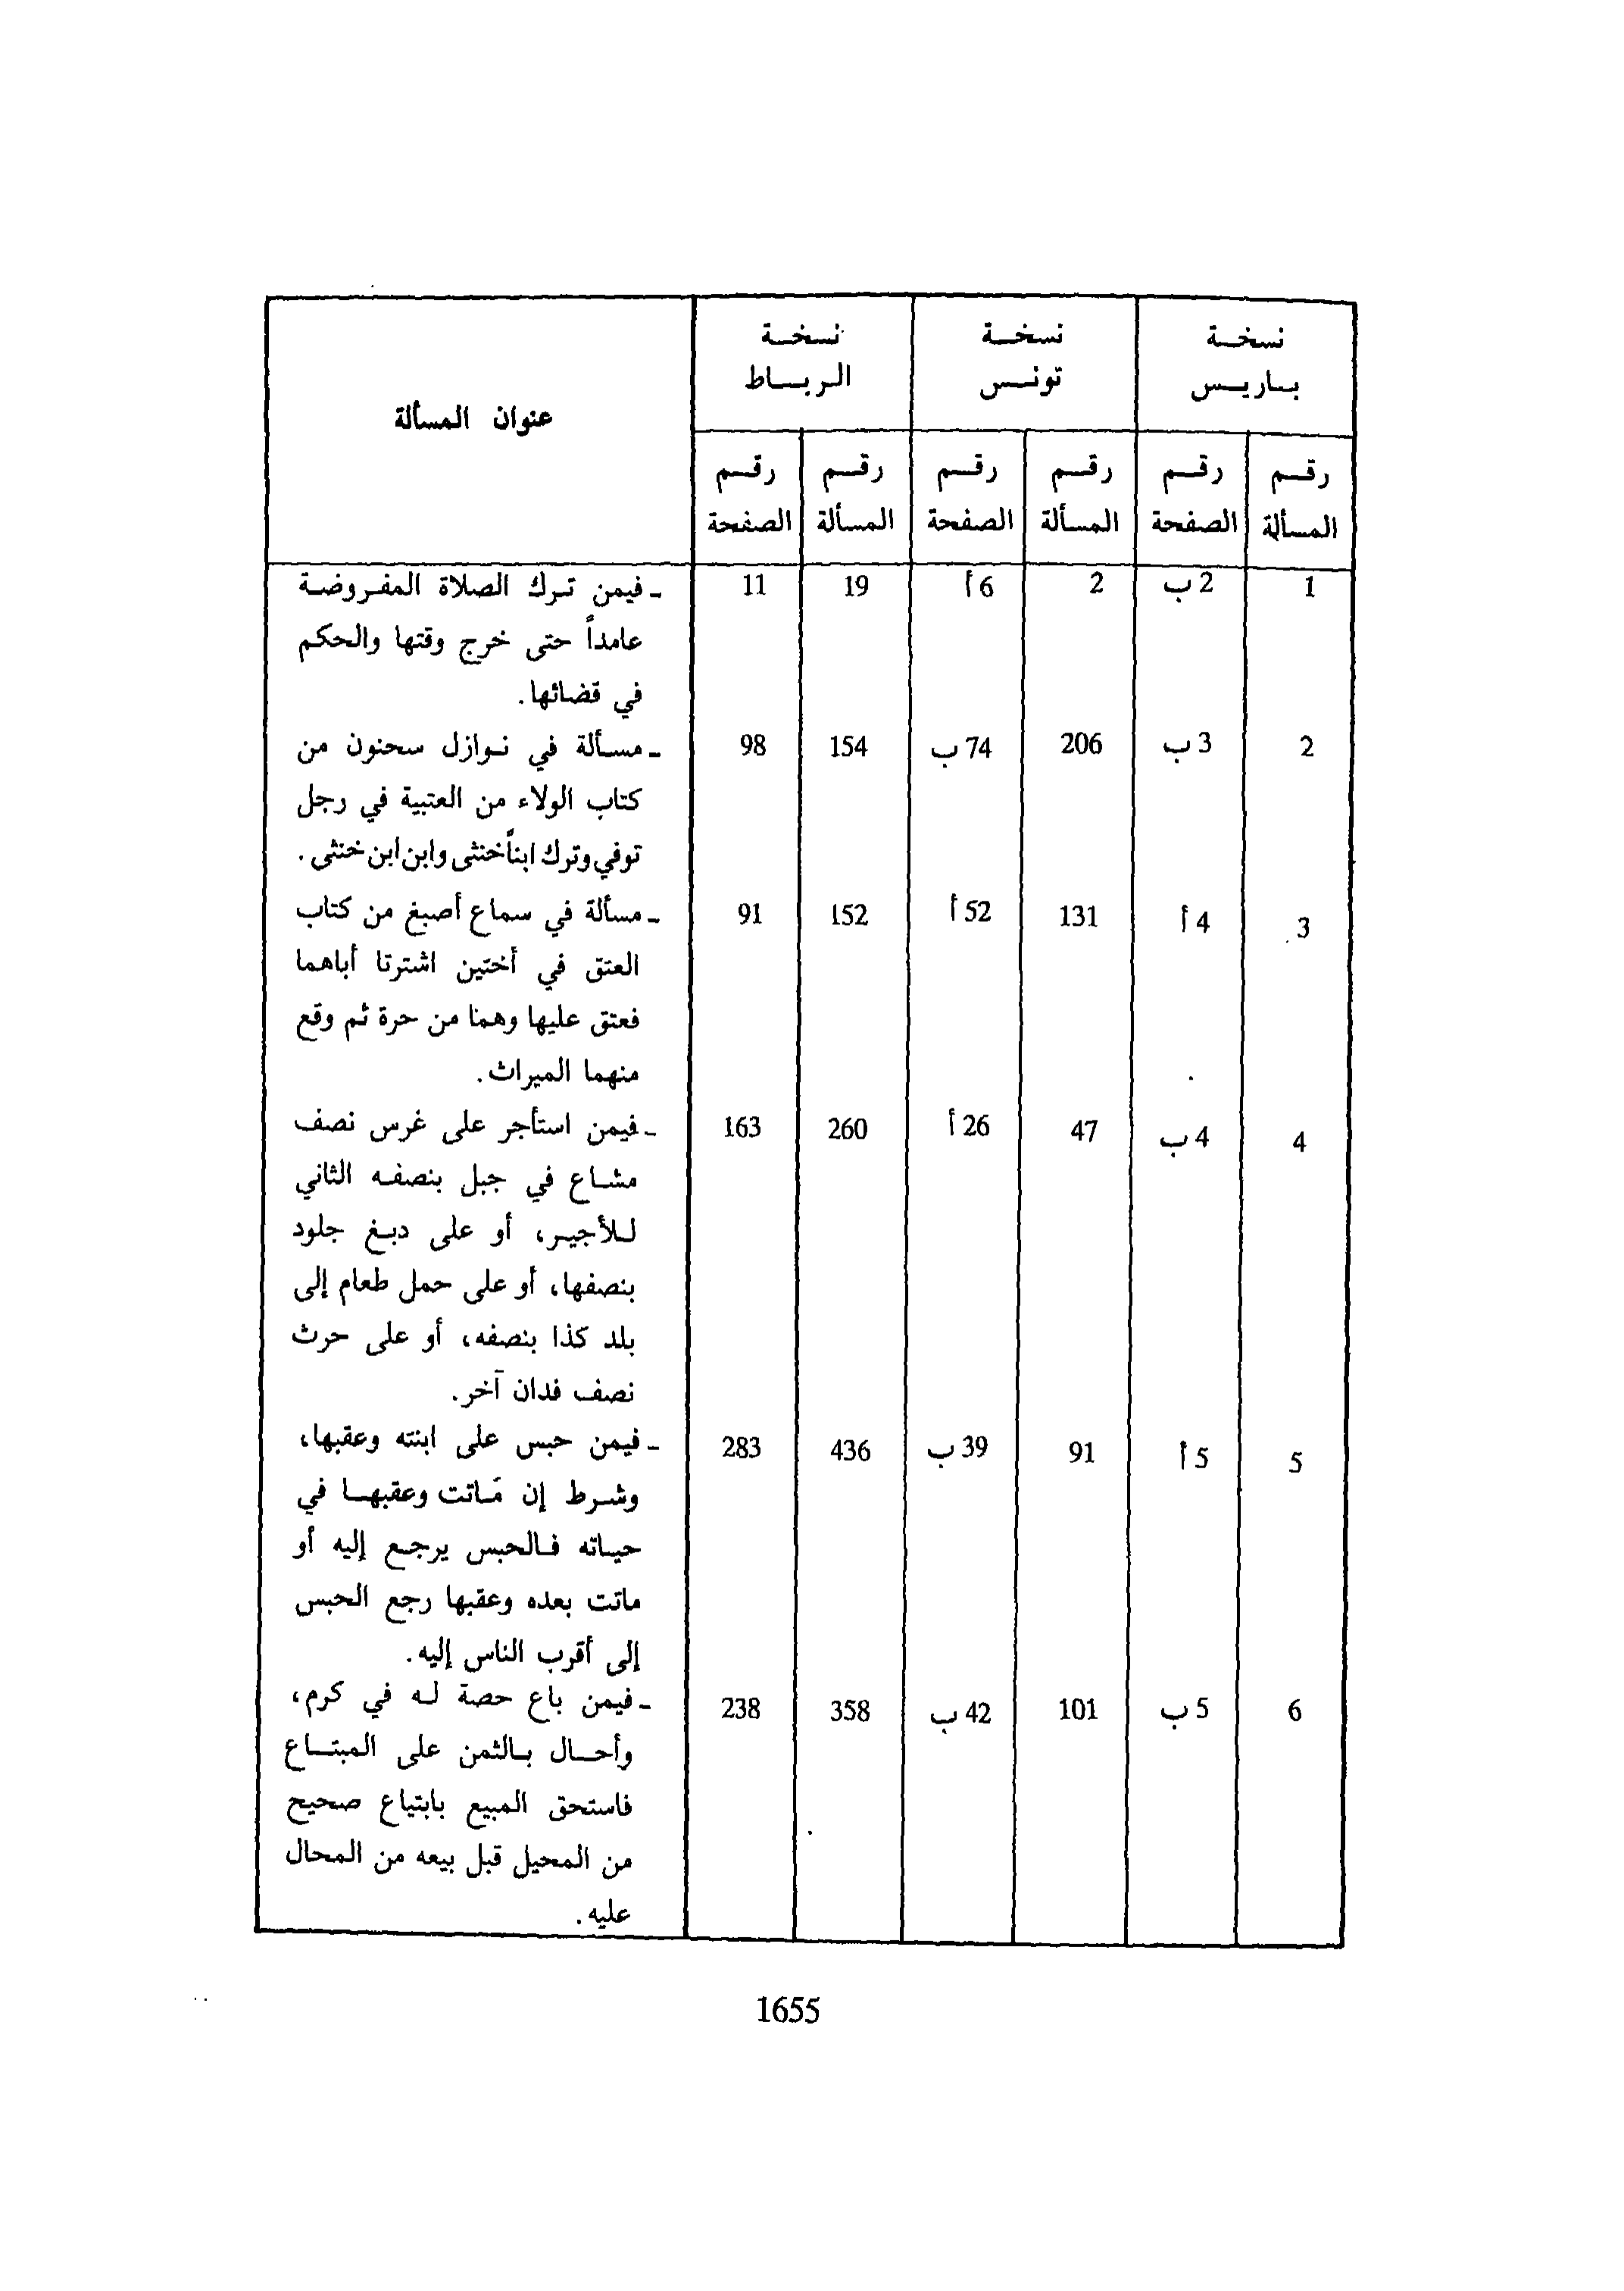 نسخة نسخة نسخة
باريس تونس الرباط
عنوان المسألة
رقم رقم رقم رقم رقم رقم
المسألة الصفحة المسألة الصفحة المسألة الصفحة
1 2 ب 2 6 أ 19 11 - فيمن ترك الصلاة المفروضة
عامداً حتى خرج وقتها والحكم
في قضائها.
2 3 ب 206 74 ب 154 98 - مسألة في نوازل سحنون من
كتاب الولاء من العتبية في رجل
توفي وترك ابناً خنثى وابن ابن خنثى.
3 4 أ 131 52 أ 152 91 - مسألة في سماع أصبغ من كتاب
العتق في أختين اشترتا أباهما
فعتق عليها وهما من حرة ثم وقع
منهما الميراث.
4 4 ب 47 26 أ 260 163 - فيمن استأجر على غرس نصف
مشاع في جبل بنصفه الثاني
للأجير، أو على دبغ جلود
بنصفها، أو على حمل طعام إلى
بلد كذا بنصفه، أو على حرث
نصف فدان آخر.
5 5 أ 91 39 ب 436 283 - فيمن حبس على ابنته وعقبها،
وشرط إن ماتت وعقبها في
حياته فالحبس يرجع إليه أو
ماتت بعده وعقبها رجع الحبس
إلى أقرب الناس إليه.
6 5 ب 101 42 ب 358 238 - فيمن باع حصة له في كرم،
وأحال بالثمن على المبتاع
فاستحق المبيع بابتياع صحيح
من المحيل قبل بيعه من المحال
عليه.
1655